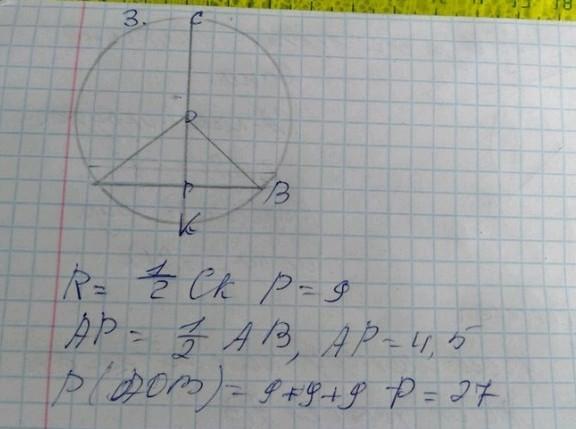 3.
C
O
P
B
K
R = 1/2 CK P = 9
AP = 1/2 AB, AP = 4,5
P(AOB) = 9+9+9 P = 27